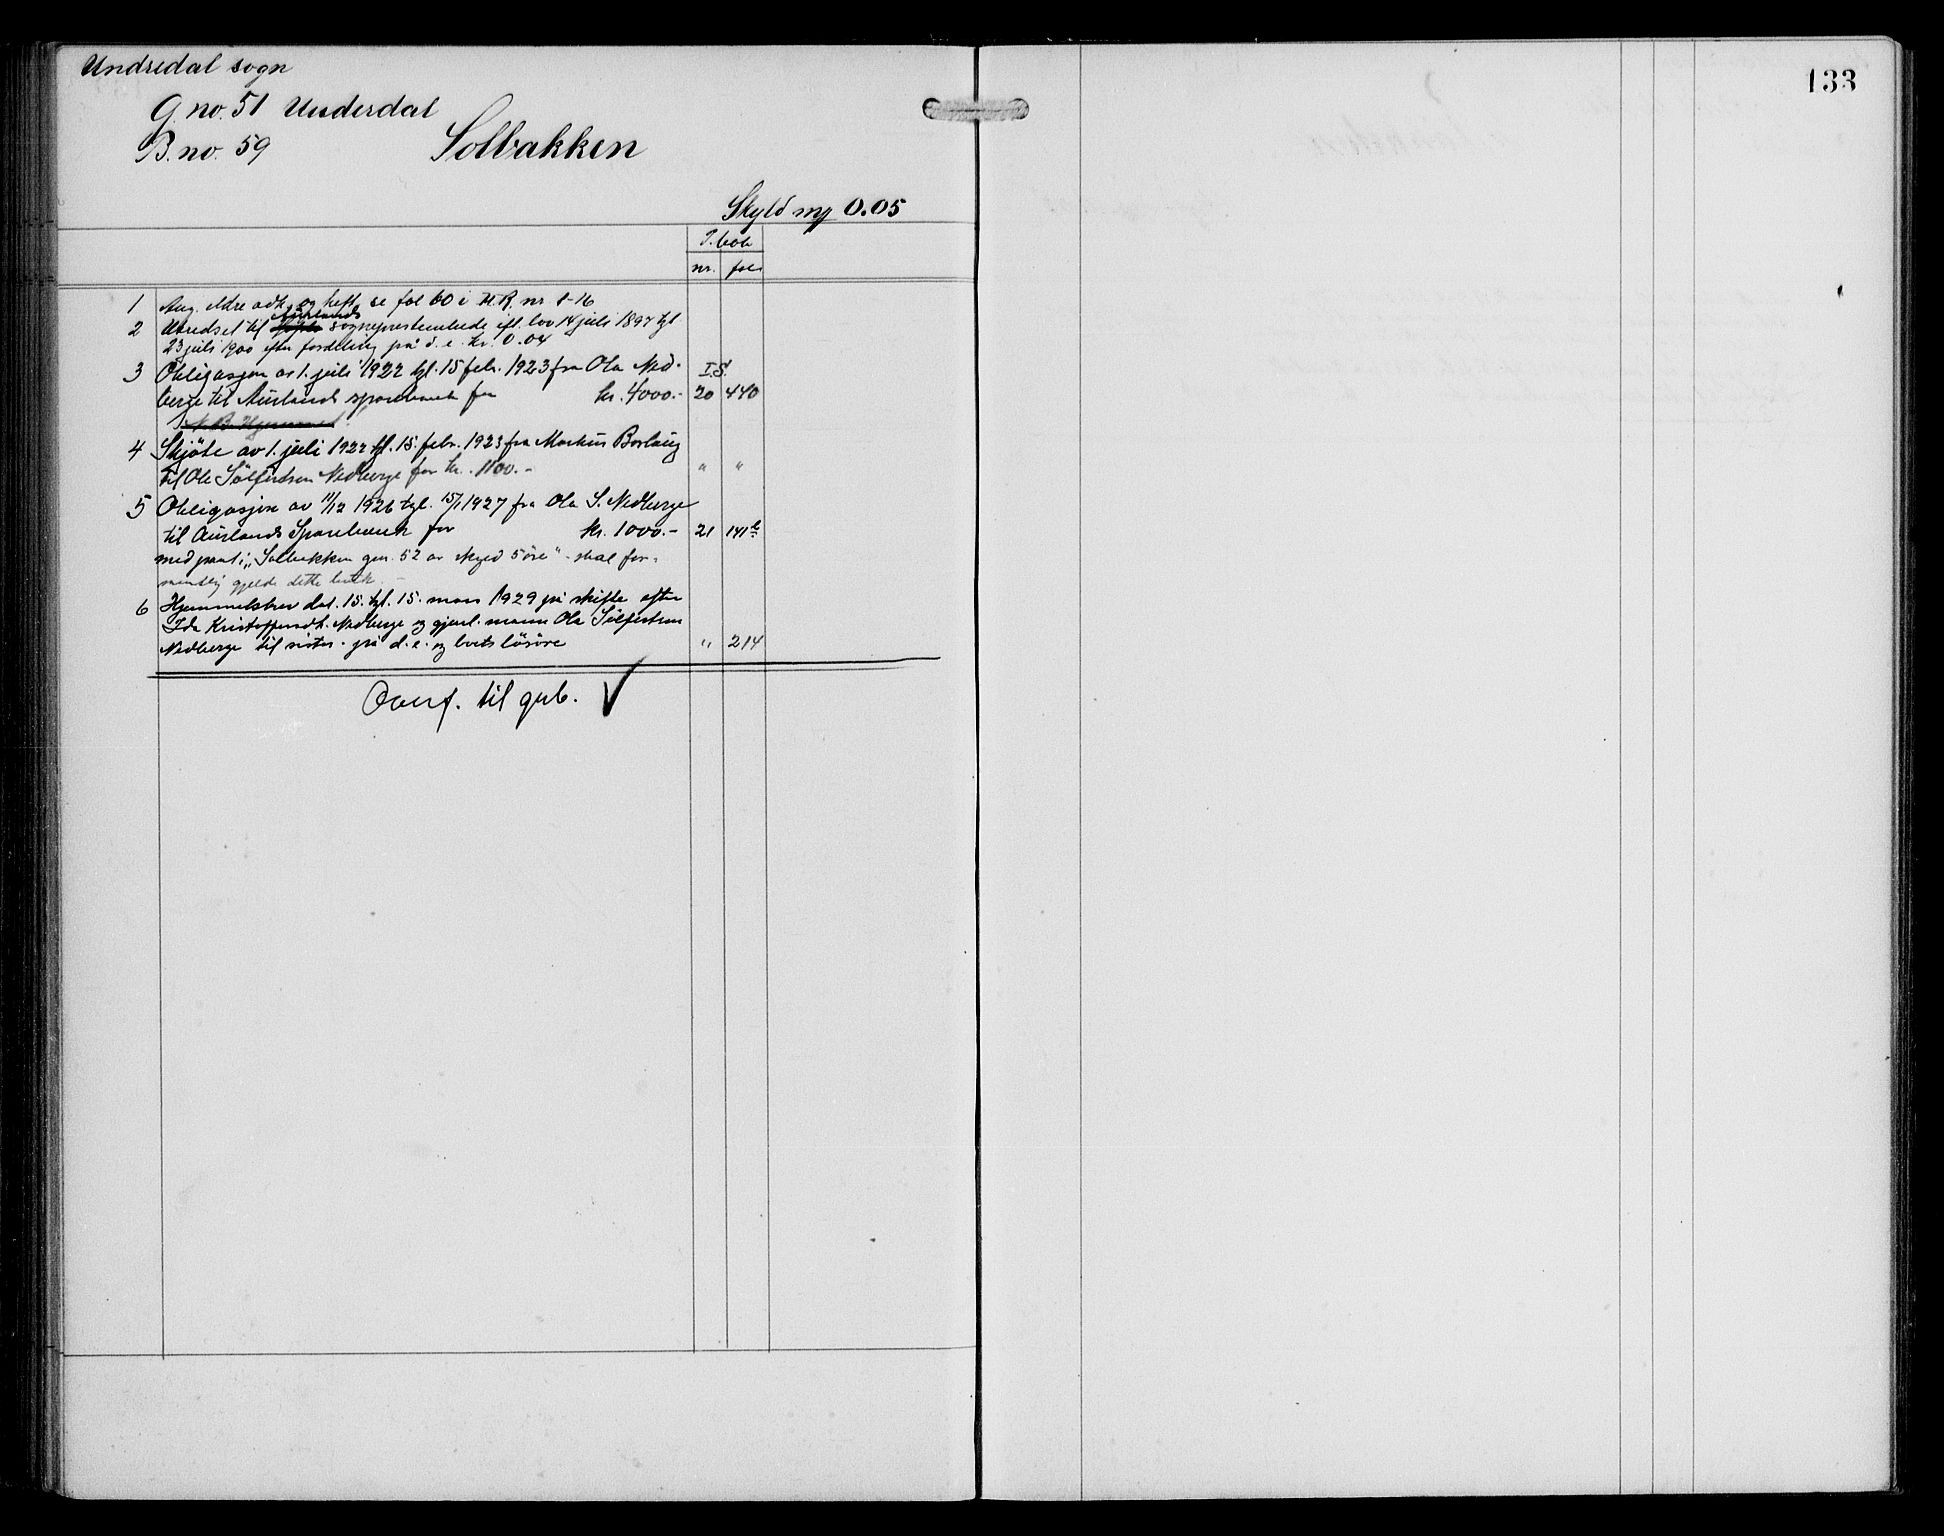 133
Undredal sogn
G. no. 51 Underdal
B. no. 59 Solbakken
Skyld my 0.05
P. bok
nr. fol.
1 Ang. eldre adk. og heft. se fol 60 i M.R. nr 1-16
2 Utredsel til Aurlands sogneprestembede ifl. lov 14 juli 1897 tgl
23 juli 1900 efter fordeling på d. e. kr. 0.04
3 Obligasjon av 1. juli 1922 tgl. 15 febr. 1923 fra Ola Ned- I.S.
berge til Aurlands sparebank for kr. 4000.- 20 440
N.B. Hjemmel
4 Skjöte av 1. juli 1922 tgl. 15. febr. 1923 fra Markus Borlaug
til Ole Sölfestsen Nedberge for kr. 1100.- " "
5 Obligasjon av 11/12 1926 tgl. 15/1 1927 fra Ola S. Nedberge
til Aurlands Sparebank for kr. 1000.- 21 141b
med pant i "Solbakken gnr. 52 av skyld 5 öre" - skal for-
mentlig gjelde dette bruk. -
6 Hjemmelsbrev dat. 15. tgl. 15. mars 1929 på skifte efter
Ida Kristoffersdt. Nedberge og gjenl. mann Ola Sölfestsen
Nedberge til sistn. på d. e. og boets lösöre " 214
Overf. til grb. ✓